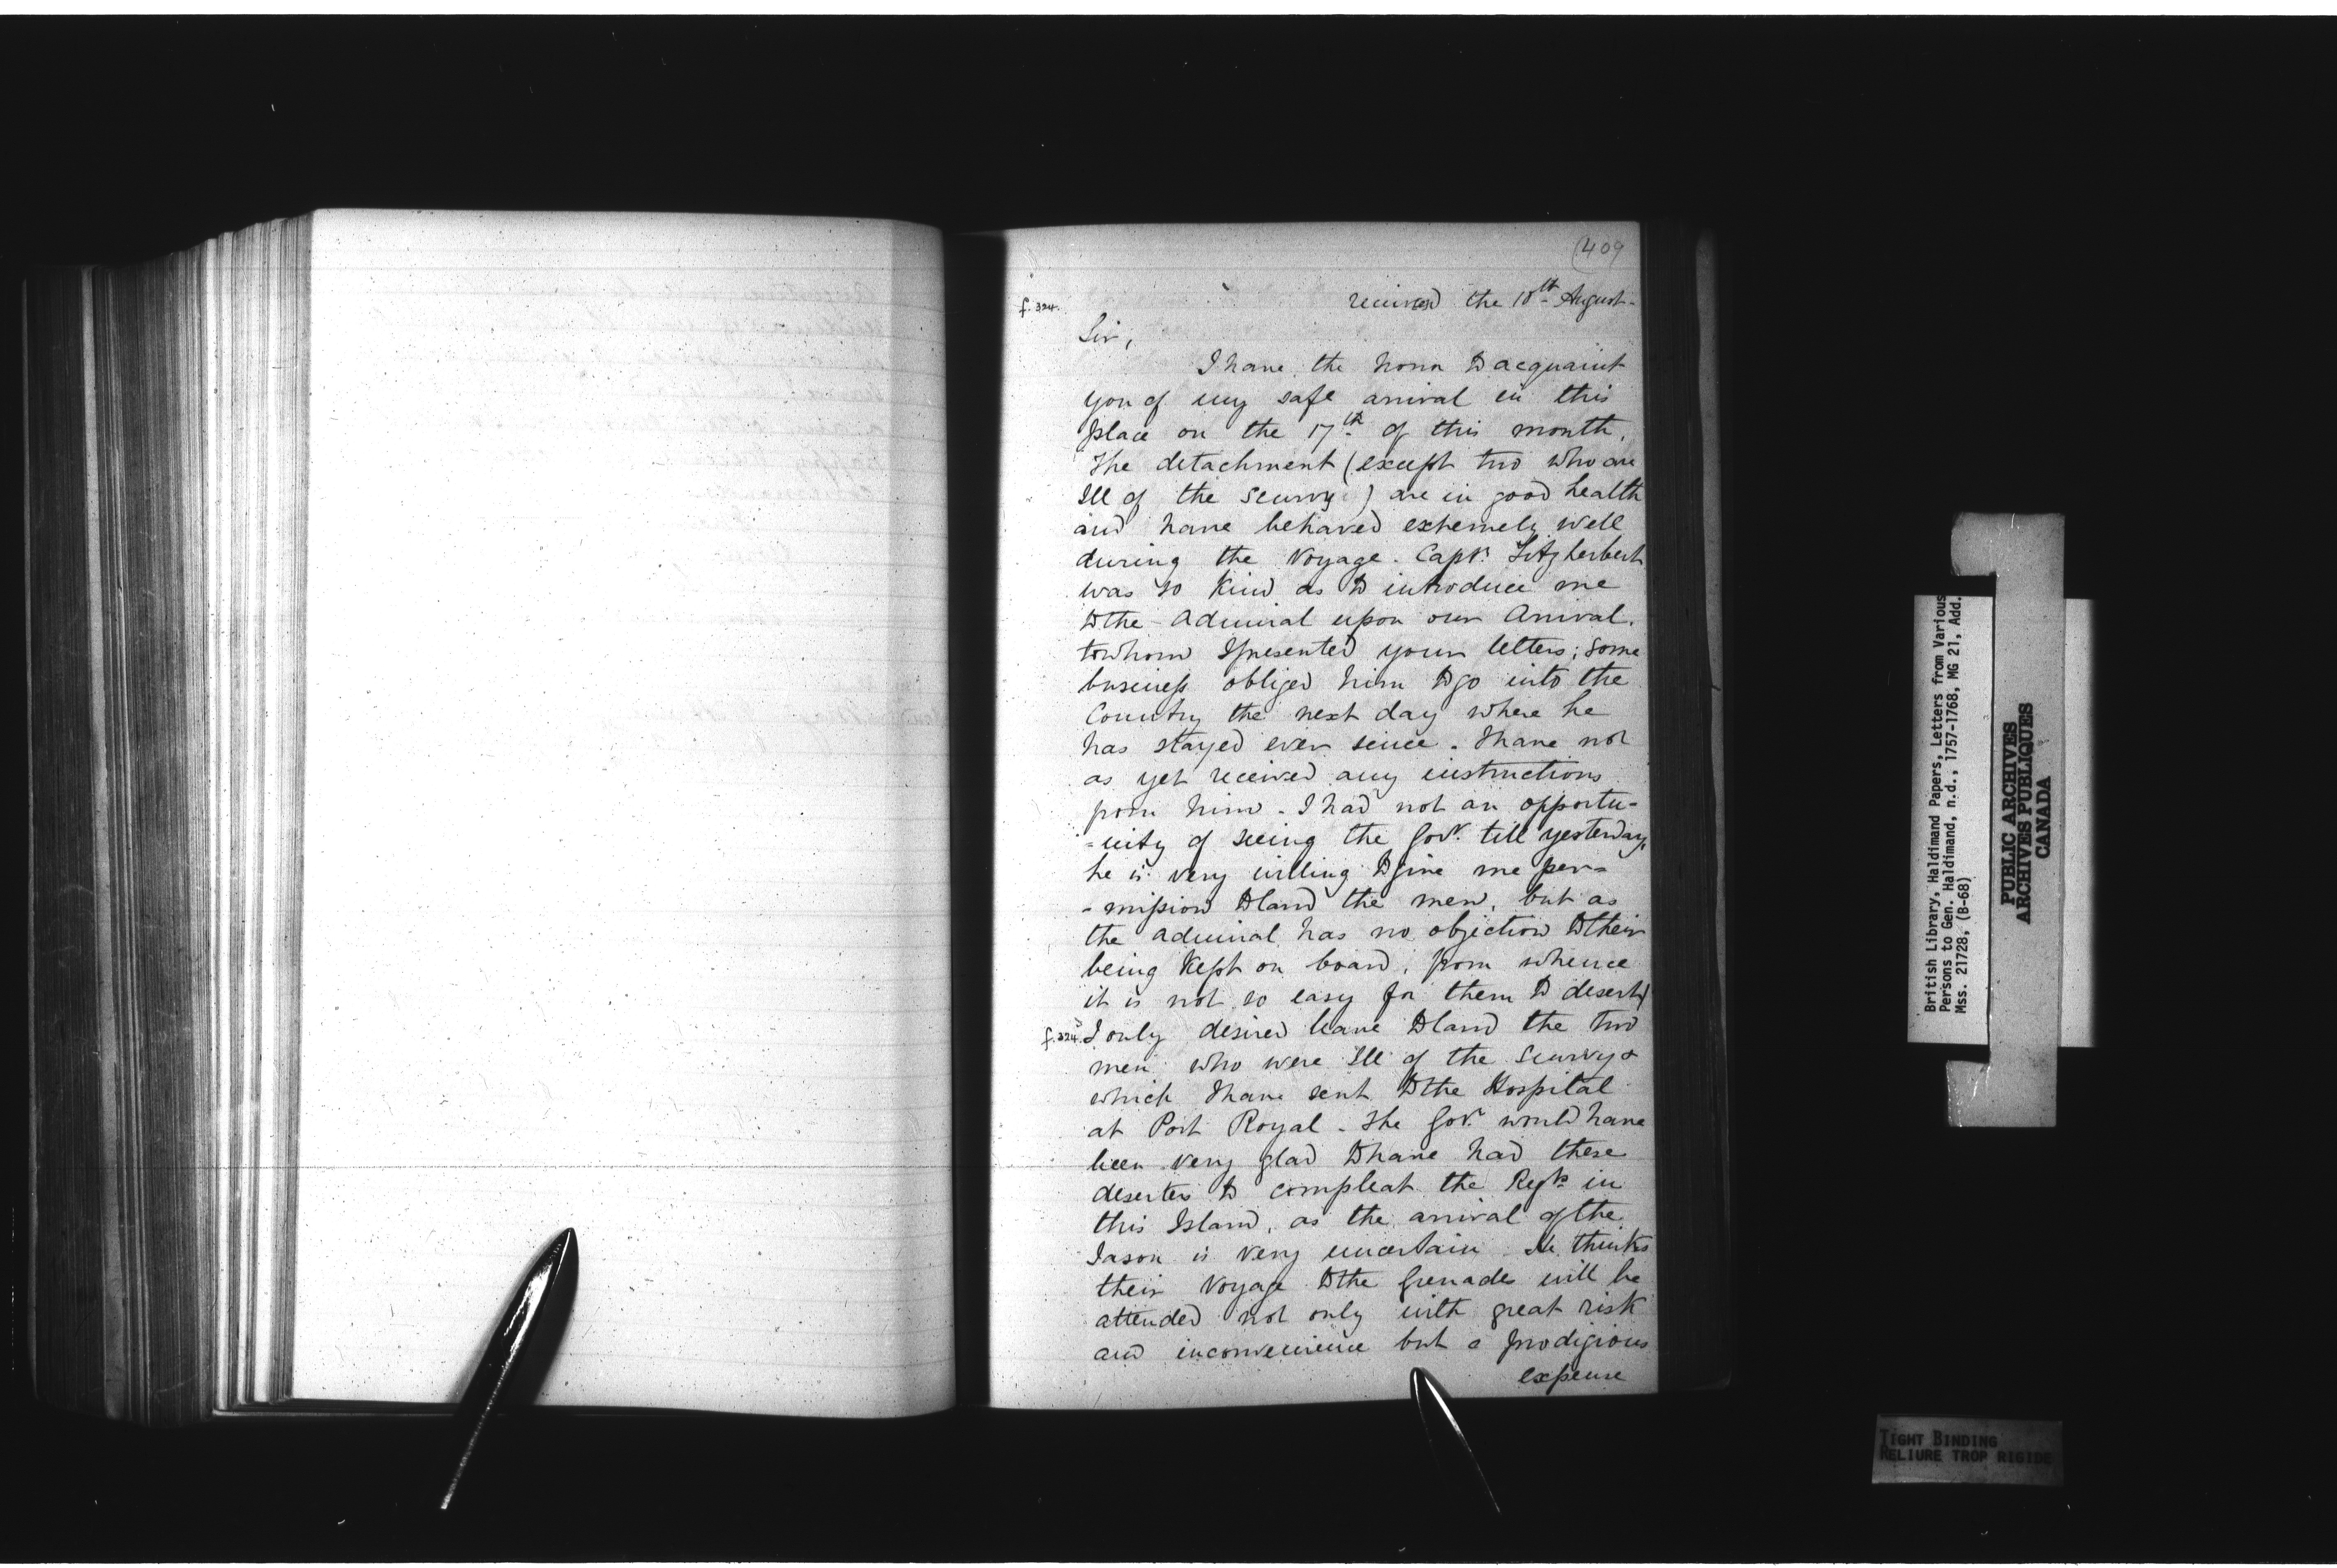 (409
f. 324.
received the 18th August-
Sir,
I have the honor to acquaint
you of my safe arrival in this
place on the 17th of this month.
The detachment (except two who are
Ill of the Scurvy) are in good health
and have behaved extremely well
during the Voyage. Capt. Fitzherbert
was so Kind as to introduce me
to the Admiral upon our Arrival.
to whom I presented your letters; some
business obliged him to go into the
Country the next day where he
has stayed ever since. I have not
as yet received any instructions
from him - I had not an opportu-
-nity of seeing the Govr. till yesterday,
he is very willing to give me per-
-mission to land the men, but as
the admiral has no objection to their
being Kept on board, from whence
it is not so easy for them to desert)
f. 324b
I only desired leave to land the two
men who were Ill of the Scurvy &
which I have sent to the Hospital
at Port Royal - The Govr. would have
been very glad to have had these
deserters to compleat the Regts. in
this Island, as the arrival of the
Jason is very uncertain. He thinks
their Voyage to the Grenades will be
attended not only with great risk
and inconvenience but a prodigious
expense
British Library, Haldimand Papers, Letters from Various
Persons to Gen. Haldimand, n.d., 1757-1768, MG 21, Add.
Mss. 21728, (B-68)
PUBLIC ARCHIVES
ARCHIVES PUBLIQUES
CANADA
TIGHT BINDING
RELIURE TROP RIGIDE